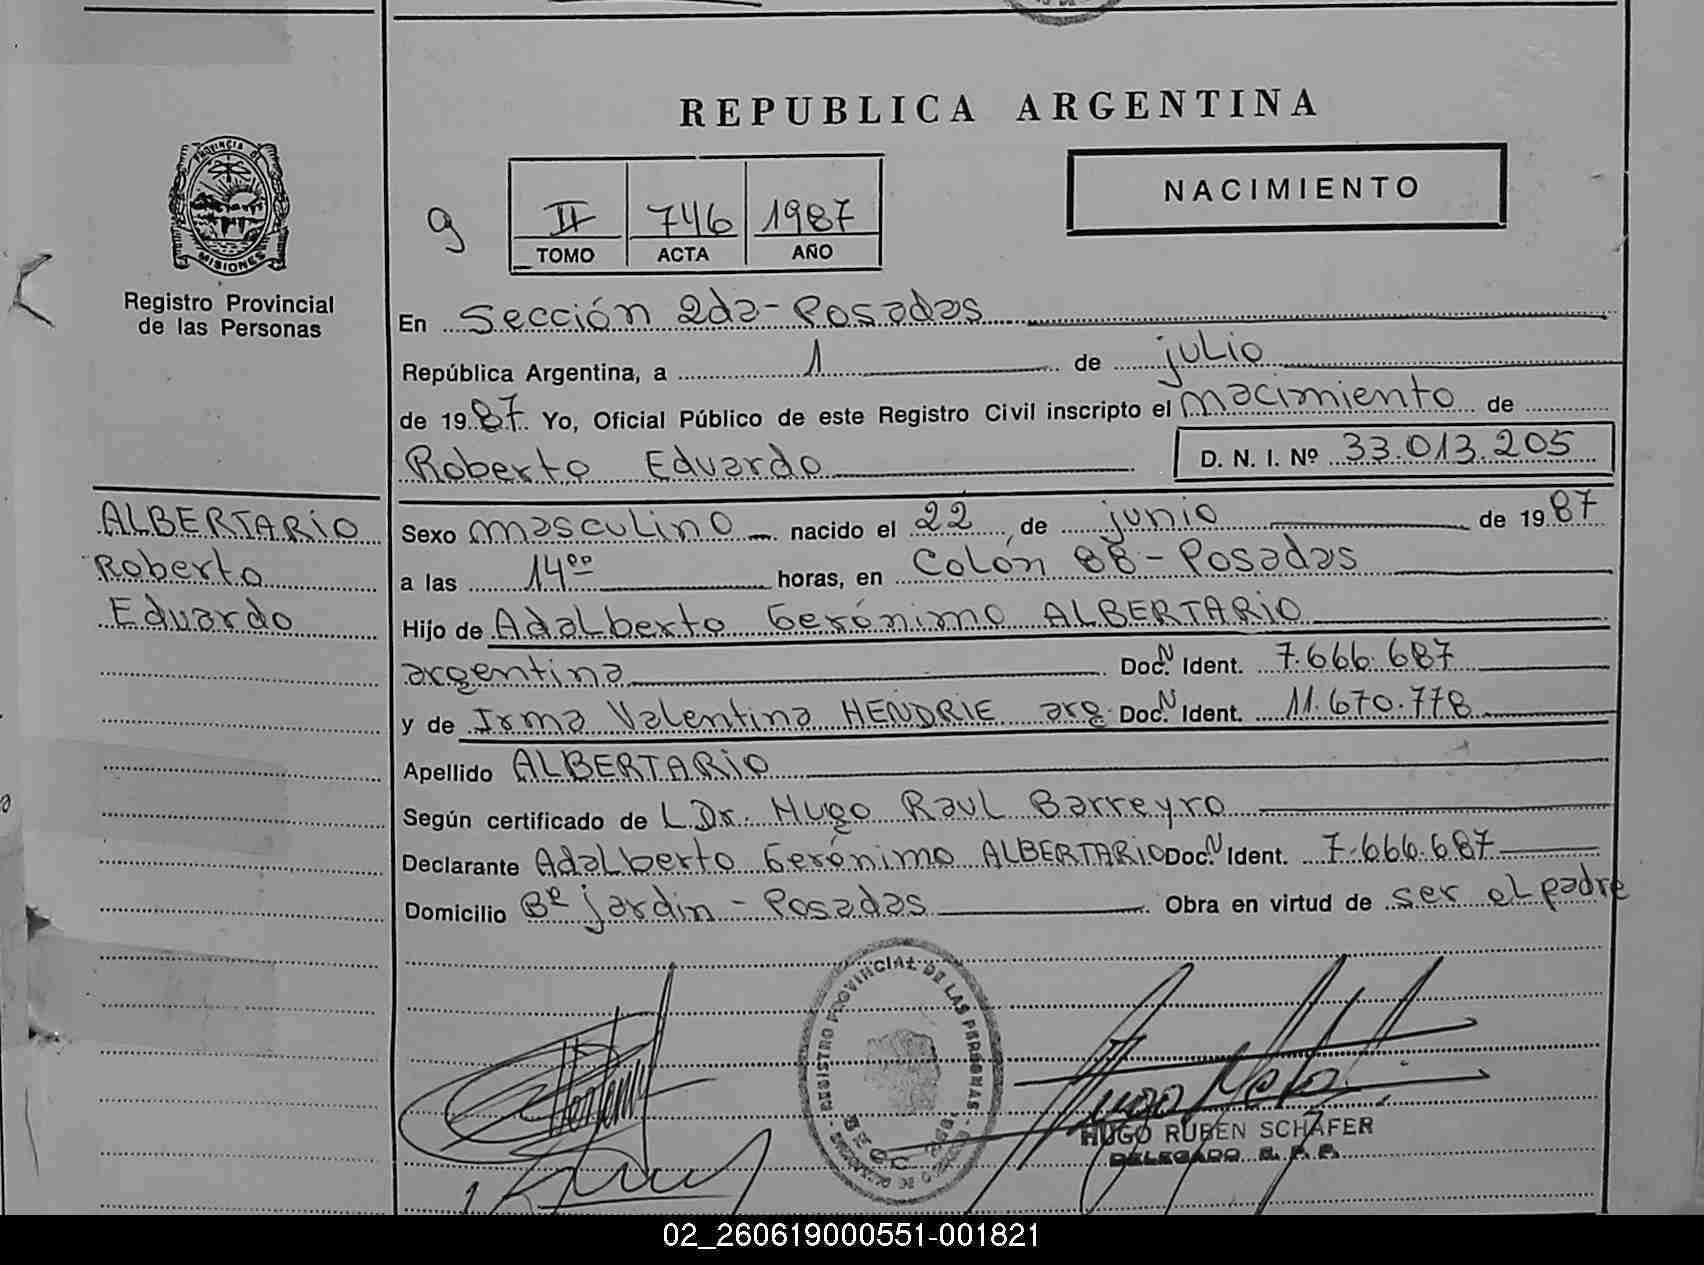 REPUBLICA ARGENTINA
PROVINCIA DE
MISIONES
Registro Provincial
de las Personas
g
II 746 1987
TOMO ACTA AÑO
NACIMIENTO
En Sección 2da - Posadas
República Argentina, a 1 de julio
de 1987 Yo, Oficial Público de este Registro Civil inscripto el nacimiento de
Roberto Eduardo D. N. I. Nº 33.013.205
ALBERTARIO
Roberto
Eduardo
Sexo masculino nacido el 22 de junio de 1987
a las 14⁰⁰ horas, en Colón 88 - Posadas
Hijo de Adalberto Gerónimo ALBERTARIO
argentina Doc. N Ident. 7.666.687
y de Irma Valentina HENDRIE arg. Doc. N Ident. 11.670.778
Apellido ALBERTARIO
Según certificado de L Dr. Hugo Raul Barreyro
Declarante Adalberto Gerónimo ALBERTARIO Doc. N Ident. 7.666.687
Domicilio Bº jardin - Posadas Obra en virtud de ser el padre
REGISTRO PROVINCIAL DE LAS PERSONAS
HUGO RUBEN SCHÄFER
DELEGADO R. P. P.
02_260619000551-001821